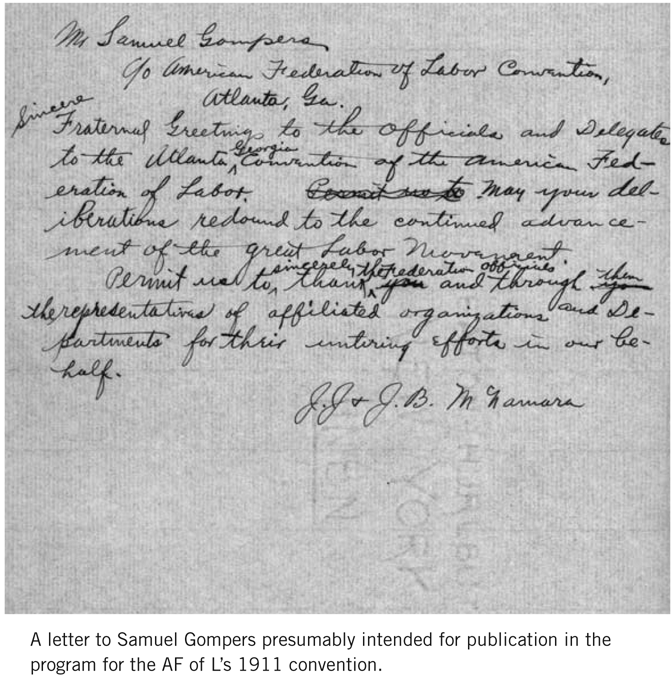 Mr Samuel Gompers
c/o American Federation of Labor Convention,
Atlanta, Ga.
Sincere
Fraternal Greetings to the Officials and Delegates
Georgia
to the Atlanta, Convention of the American Fed-
eration of Labor. Permit us to May your del-
iberations redound to the continued advance-
ment of the great Labor Movement.
sincerely the Federation officials them
Permit us to, thank you and through you
the representatives of affiliated organizations and De-
partments for their untiring efforts in our be-
half.
J.J & J.B. McNamara
YORK
A letter to Samuel Gompers presumably intended for publication in the
program for the AF of L's 1911 convention.